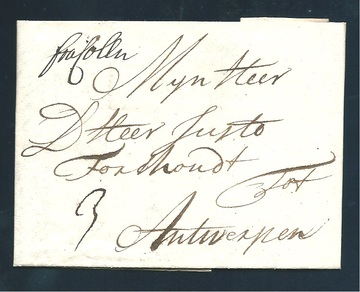 fra Colln
Myn Heer
D Heer Justo
Forchoudt Tot
3
Antwerpen